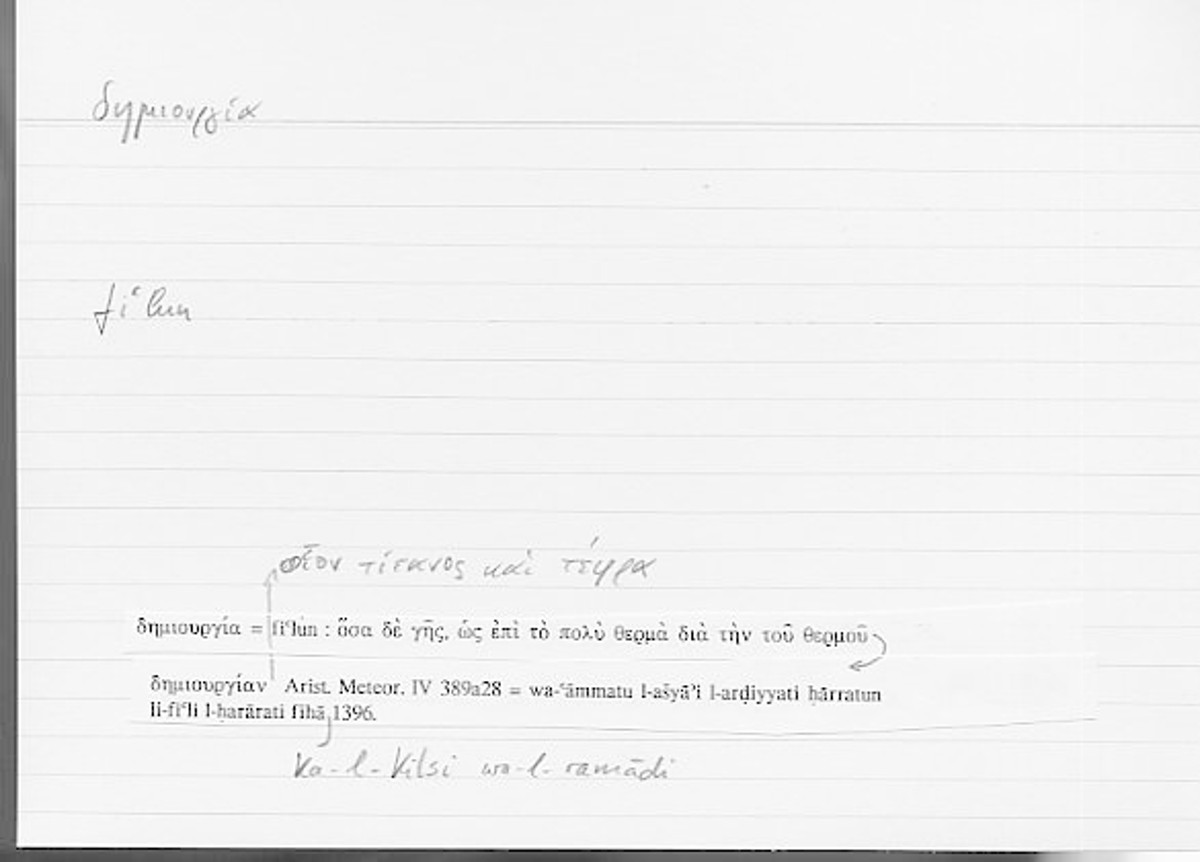 δημιουργία
fiʿlun
οἷον τίτανος καὶ τέφρα
δημιουργία = fiʿlun : ὅσα δὲ γῆς, ὡς ἐπὶ τὸ πολὺ θερμὰ διὰ τὴν τοῦ θερμοῦ
δημιουργίαν Arist. Meteor. IV 389a28 = wa-ʿāmmatu l-ašyāʾi l-arḍiyyati ḥārratun
li-fiʿli l-ḥarārati fīhā 1396.
ka-l-kilsi wa-l-ramādi